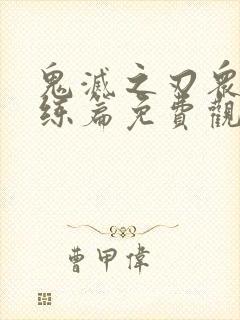 鬼滅之刃衆
练篇免費觀
曹甲偉